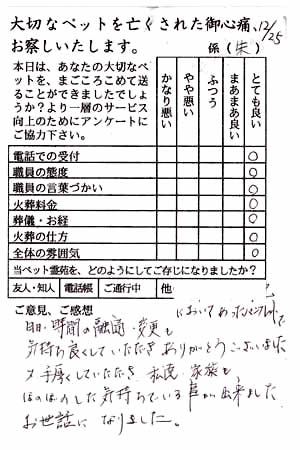 大切なペットを亡くされた御心痛、
12/25
お察しいたします。
係(朱)
本日は、あなたの大切なペ
ットを、まごころこめて送
ることができましたでしょ
うか?より一層のサービス
向上のためにアンケートに
ご協力下さい。
かなり悪い
やや悪い
ふつう
まあまあ良い
とても良い
電話での受付 ○
職員の態度 ○
職員の言葉づかい ○
火葬料金 ○
葬儀・お経 ○
火葬の仕方 ○
全体の雰囲気 ○
当ペット霊苑を、どのようにしてご存じになりましたか?
友人・知人 電話帳 ご通行中 他
ご意見、ご感想
においてあったパンフレットで
日日・時間の融通・変更も
気持ち良くしていただきありがとうございました
手厚くしていただき、私達、家族も
ほのぼのした気持ちでいる事が出来ました
お世話になりました。